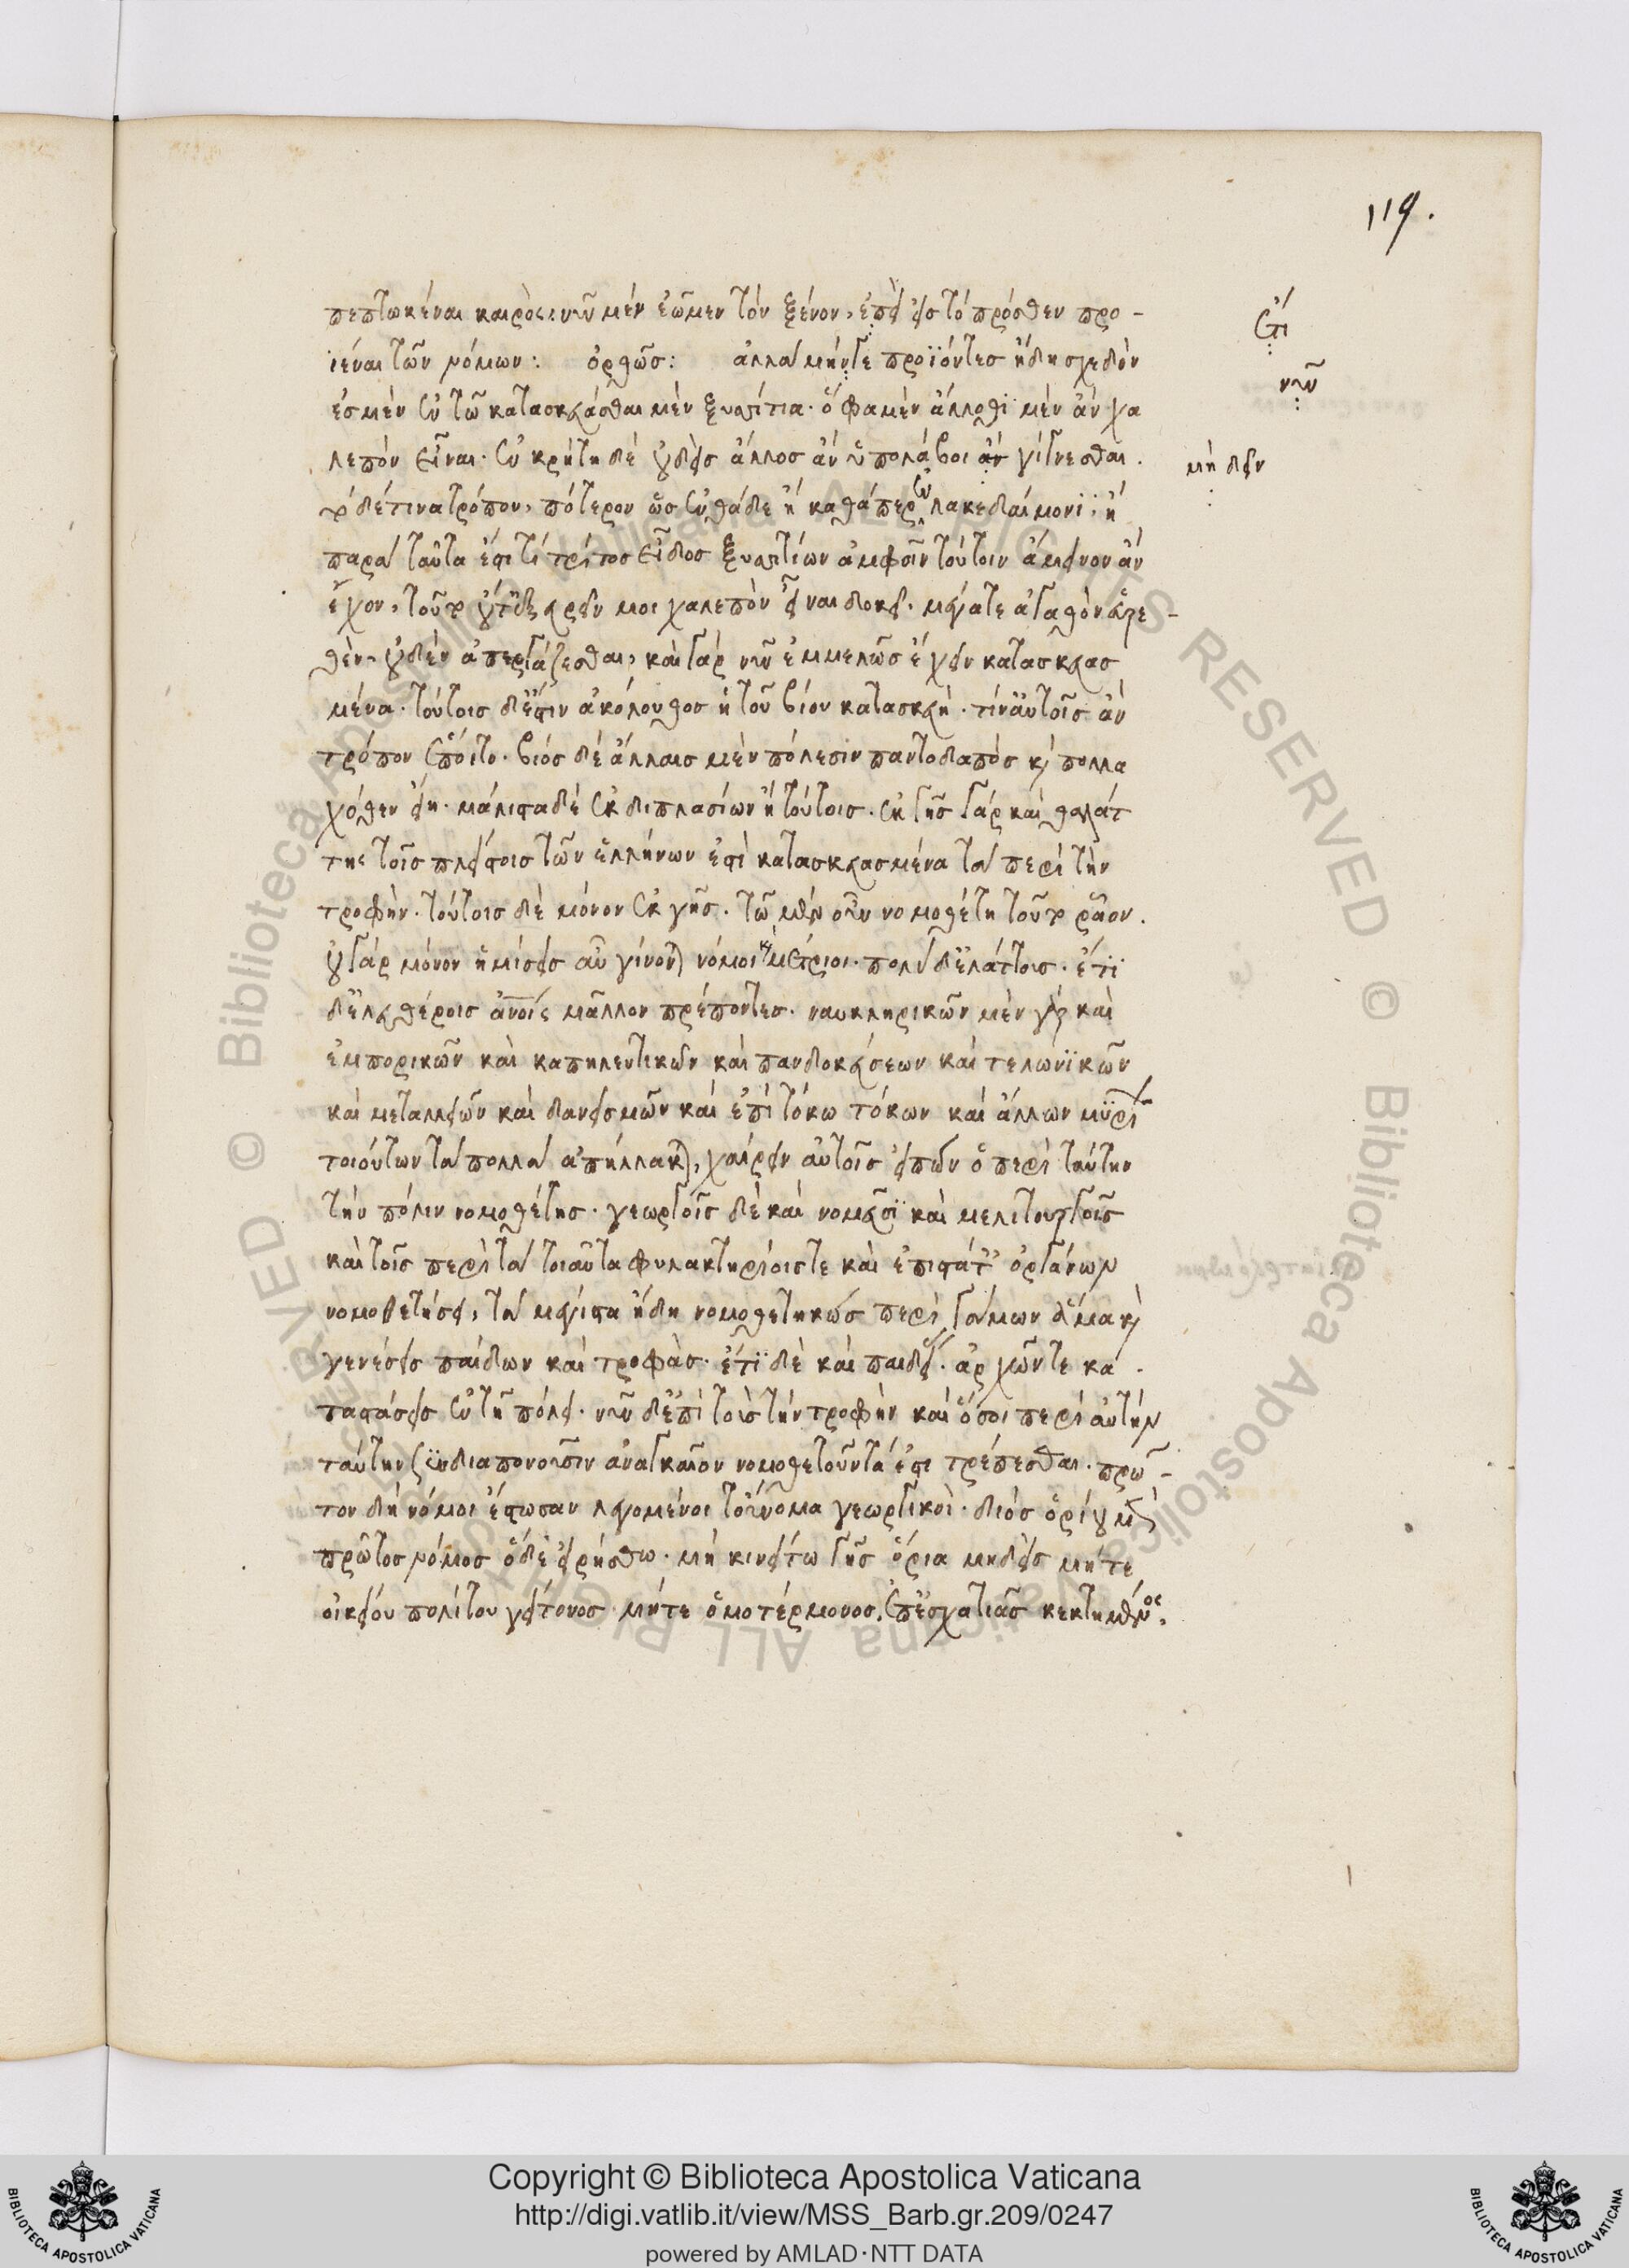 119.
πεπτωκέναι καιρὸς, νῦν μὲν ἐῶμεν τὸν ξένον, ἐπεὶ εἰς τὸ πρόσθεν προ-
ϊέναι τῶν νόμων: ὀρθῶσ: ἀλλὰ μήν γε προϊόντεσ ἤδη σχεδὸν
ἐσμὲν ἐν τῶ κατασκευάσθαι μὲν ξυσσίτια. ὅ φαμὲν ἄλλοθϊ μὲν ἂν χα
λεπὸν εἶναι. ἐν κρήτη δὲ οὐδεὶσ ἄλλοσ ἂν ὑπολάβοι ἂν γίγνεσθαι.
τὸ δὲ τίνα τρόπον, πότερον ὡσ ἐνθάδε ἢ καθάπερ ἐν λακεδαίμονϊ, ἢ
παρὰ ταῦτα ἔστι τὶ τρίτοσ εἶδοσ ξυσσιτίων ἀμφοῖν τούτοιν ἄμεινον ἂν
ἔχον, τοῦτο οὔτ' ἐξευρεῖν μοι χαλεπὸν εἶναι δοκεῖ. μέγατε ἀγαθὸν εὑρε-
θὲν. οὐδὲν ἀπεργάζεσθαι, καὶ γὰρ νῦν ἐμμελῶσ ἔχειν κατασκευασ
μένα. τούτοισ δ' ἔστὶν ἀκόλουθοσ ἡ τοῦ βίου κατασκευὴ. τίν' αὐτοῖσ ἂν
τρόπον ἕποιτο. βιόσ δὲ ἄλλαισ μὲν πόλεσιν παντοδαπὸσ καὶ πολλα
χόθεν εἴη. μάλιστα δὲ ἐκ διπλασίων ἢ τούτοισ. ἐκ γῆσ γὰρ καὶ θαλάτ
της τοῖσ πλείστοισ τῶν ἑλλήνων ἐστὶ κατασκευασμένα τὰ περὶ τὴν
τροφὴν. τούτοισ δὲ μόνον ἐκ γῆσ. τῶ μὲν οὖν νομοθέτη τοῦτο ρᾶον.
οὐ γὰρ μόνον ἡμίσεισ αὖ γίνονται νόμοι καὶ μέτριοι. πολὺ δ' ἐλάττοισ. ἔτϊ
δ' ἐλευθέροισ ἀνοίς μᾶλλον πρέποντεσ. ναυκληρικῶν μὲν γὰρ καὶ
ἐμπορικῶν καὶ καπηλευτικῶν καὶ πανδοκεύσεων καὶ τελωνϊκῶν
καὶ μεταλλειῶν καὶ δανεισμῶν καὶ ἐπὶ τόκω τόκων καὶ ἄλλων μυρί
τοιούτων τὰ πολλὰ ἀπήλλακται, χαίρειν αὐτοῖσ εἰπὼν ὁ περὶ ταύτην
τὴν πόλιν νομοθέτησ. γεωργοῖσ δὲ καὶ νομεῦσϊ καὶ μελιτουργοῖσ
καὶ τοῖσ περὶ τὰ τοιαῦτα φυλακτηρίοιστε καὶ ἐπιστάτ ὀργάνων
νομοθετήσει, τὰ μέγιστα ἤδη νομοθετηκὼσ περὶ γάμων ἅμα καὶ
γενέσεισ παίδων καὶ τροφὰσ. ἔτϊ δὲ καὶ παιδεί. ἀρχῶντε κα
ταστάσεισ ἐν τῆ πόλει. νῦν δ' ἐπὶ τοὺσ τὴν τροφὴν καὶ ὅσοι περὶ αὐτὴν
ταύτην ξυνδιαπονοῦσιν ἀναγκαῖον νομοθετοῦντά ἐστι τρέπεσθαι. πρῶ-
τον δὴ νόμοι ἔστωσαν λεγομένοι τοὔνομα γεωργικοὶ. διὸσ ὁρίου μὲν
πρῶτοσ νόμοσ ὅδε εἰρήσθω. μὴ κινείτω γῆσ ὅρια μηδεὶσ μήτε
οἰκείου πολίτου γείτονοσ μήτε ὁμοτέρμονοσ, ἐπ' ἐσχατιᾶσ κεκτημένος,
ἔτι
νῦν
μὴ δεῖν
Copyright © Biblioteca Apostolica Vaticana
http://digi.vatlib.it/view/MSS_Barb.gr.209/0247
powered by AMLAD·NTT DATA